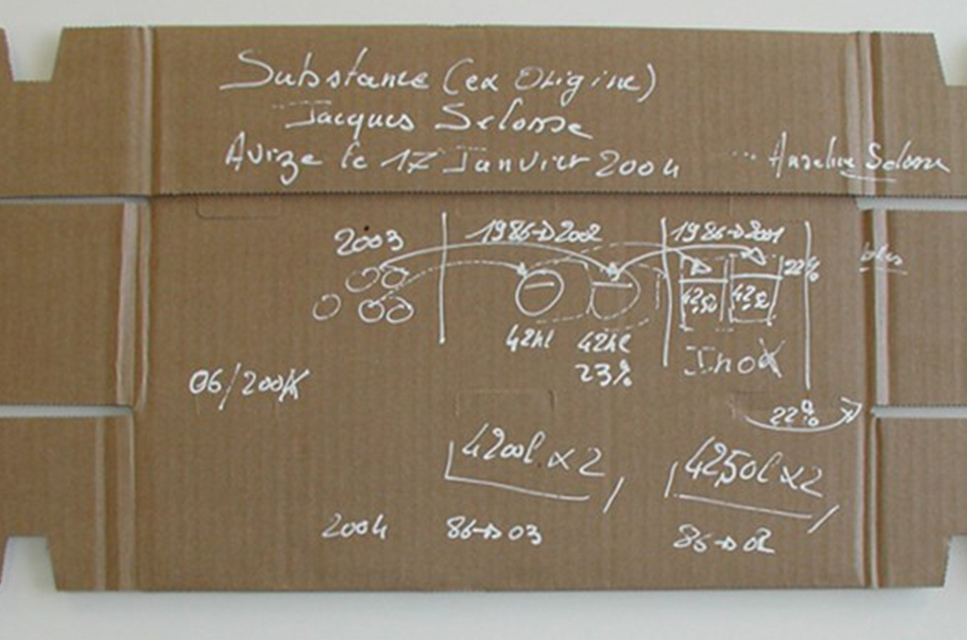 Substance (ex Origine)
Jacques Selosse
Avize le 17 Janvier 2004 ... Anselme Selosse
2003 1986→2002 1986→2001
22%
42hl 42hl
23%
Inox
06/200
22%
4200l x 2 4250l x 2
2004 86→03 86→02